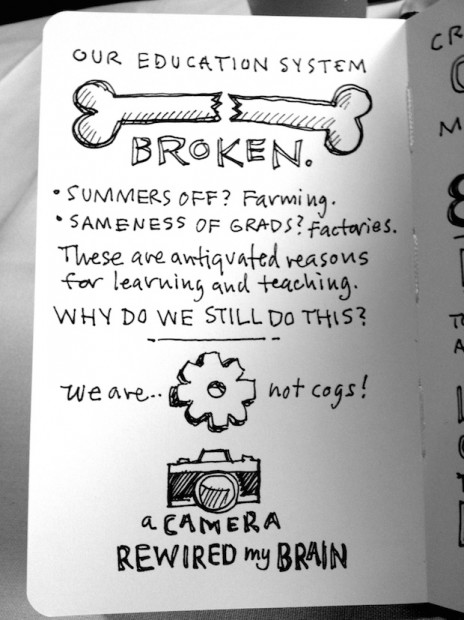 OUR EDUCATION SYSTEM
BROKEN.
• SUMMERS OFF? Farming.
• SAMENESS OF GRADS? Factories.
These are antiquated reasons
for learning and teaching.
WHY DO WE STILL DO THIS?
We are.. not cogs!
a CAMERA
REWIRED my BRAIN
CR
M